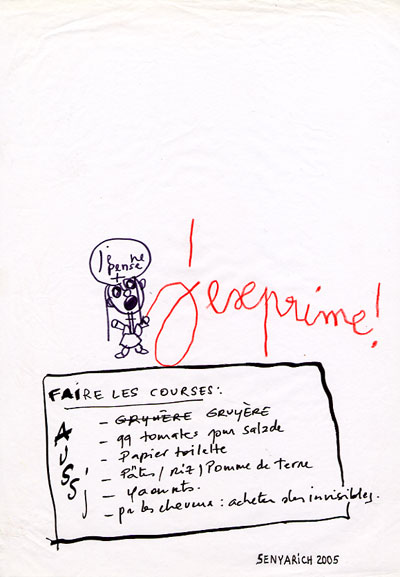 je ne
pense
+
j'exprime!
FAIRE LES COURSES:
AUSSI
- GRUYÈRE GRUYÈRE
- qq tomates pour salade
- Papier toilette
- Pâtes / Riz / Pomme de terre
- yaourts.
- pr les cheveux : acheter des invisibles.
SENYARICH 2005